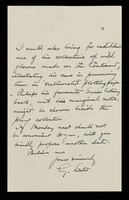 I could also bring for exhibition
one of his collections of wild
flowers made on the Continent,
illustrating his care in preserving
them in enlivened photographs.
Perhaps his favourite Swiss botany
book, with his marginal notes,
might be shown beside the
pond collection.
If Monday next should not
be convenient to you, will you
kindly propose another date.
Believe me
Yours sincerely